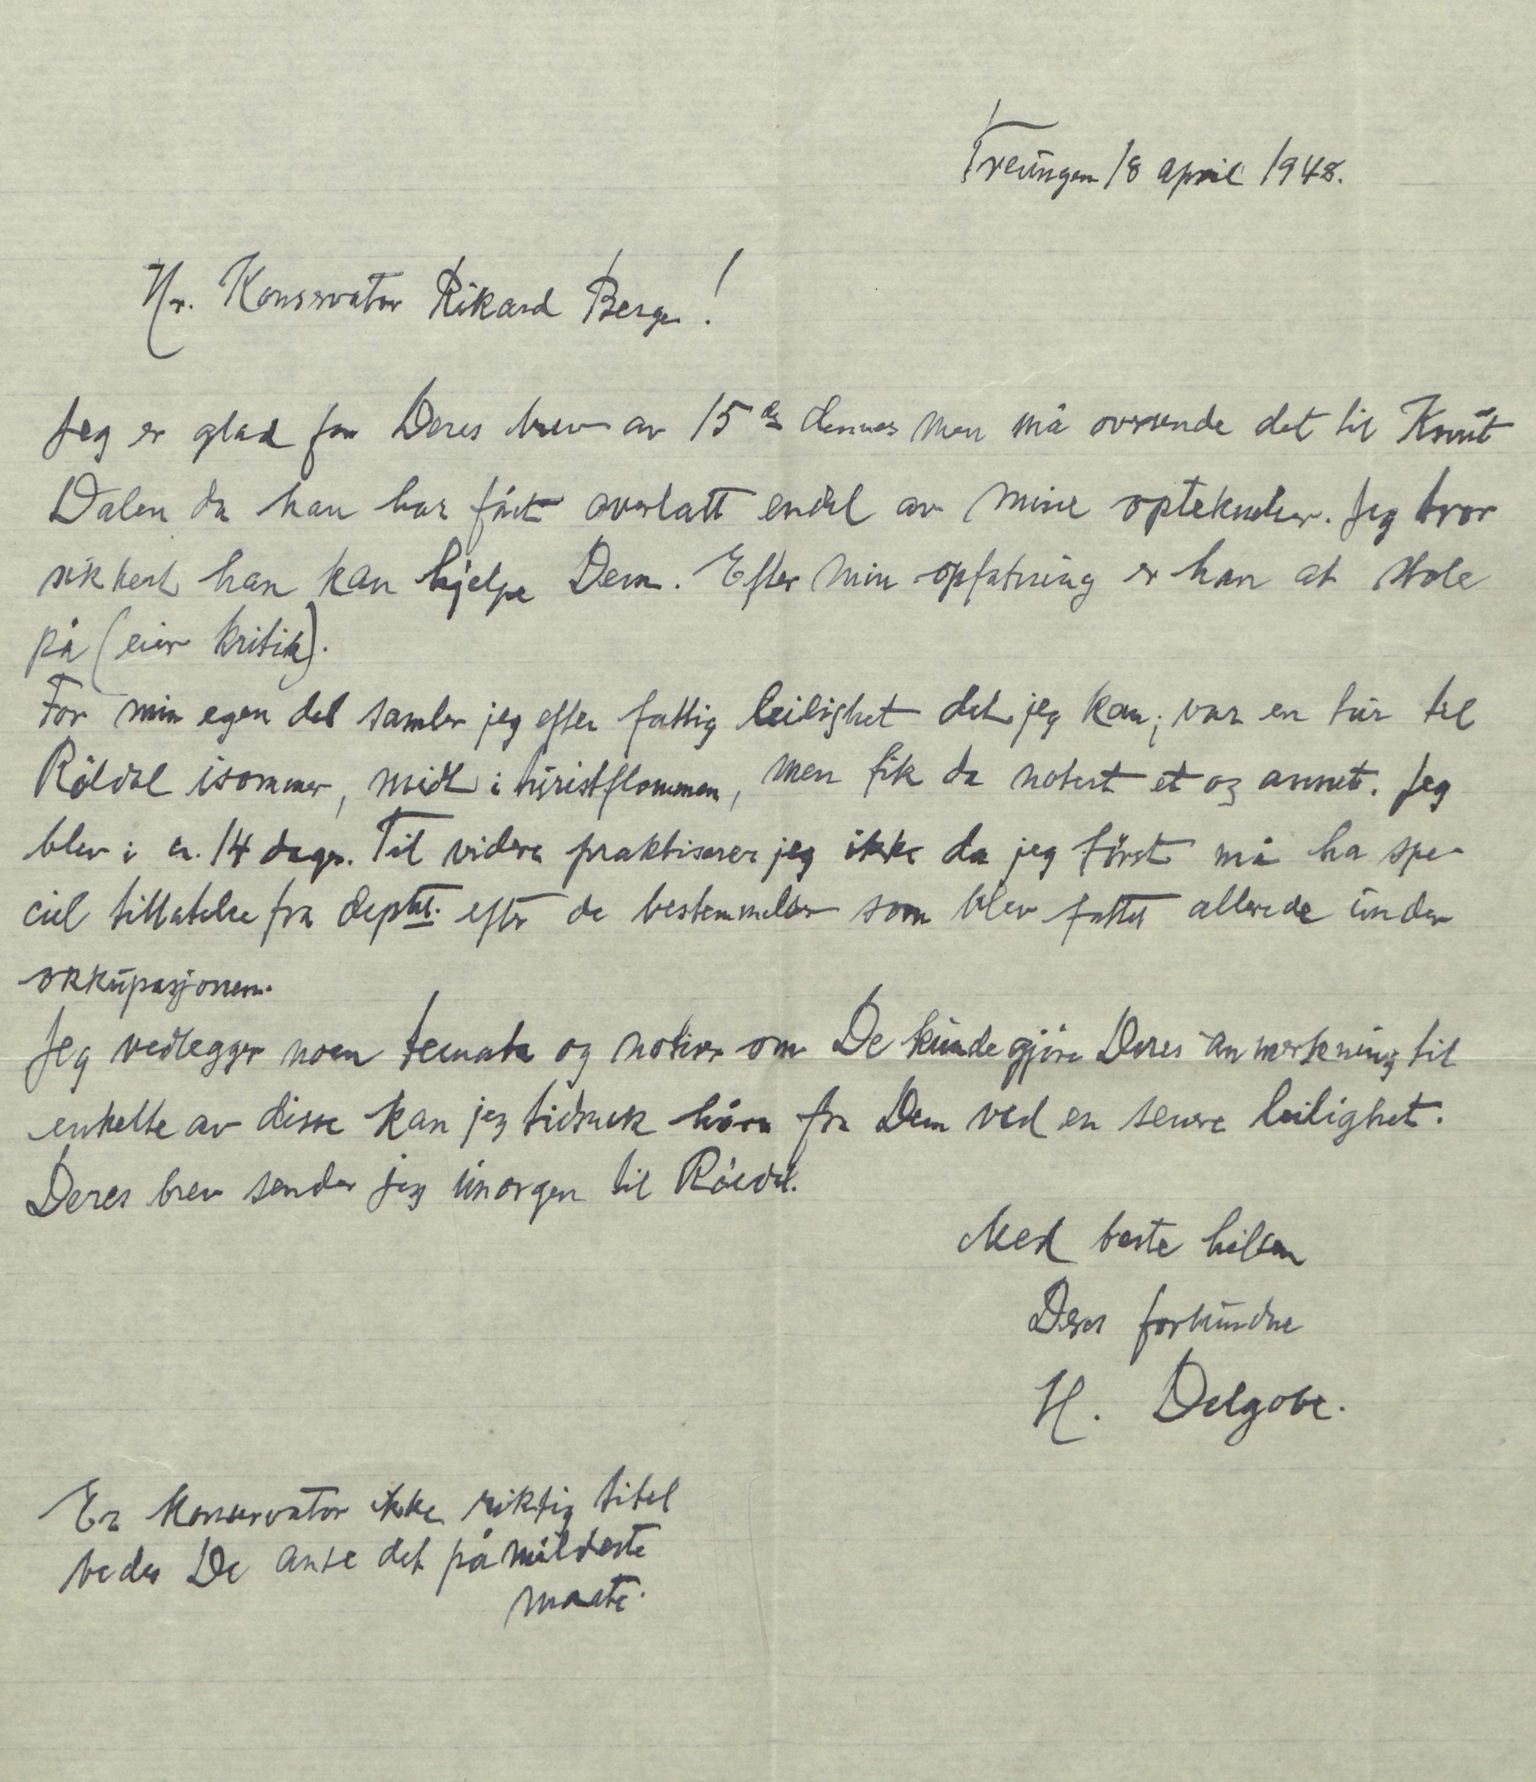 Treungen 18 april 1948.
Hr. Konservator Rikard Berge!
Jeg er glad for Deres brev av 15 de dennes men må oversende det til Knut
Dalen da han har fåt overlatt endel av mine optekndser. Jeg tror
sikkert han kan hjelpe Dem. Efter min opfatning er han at stole
på (eier kritik).
For min egen del samler jeg efter fattig leilighet det jeg kan; var en tur til
Röldal isommer, midt i turistflommen, men fik da notert et og annet. Jeg
blev i ca. 14 dager. Til videre praktiserer jeg ikke da jeg först må ha spe-
ciel tillatelse fra deptet. efter de bestemmelser som blev fattet allerede under
okkupasjonen.
Jeg vedlegger noen temata og notiser om De kunde gjöre Deres anmerkning til
enkelte av disse kan jeg tidsnok höre fra Dem ved en senere leilighet.
Deres brev sender jeg imorgen til Röldal.
Med beste hilsen
Deres forbundne
H. Delgobe.
Er Konservator ikke riktig titel
bedes De anse det på mildeste
maate.